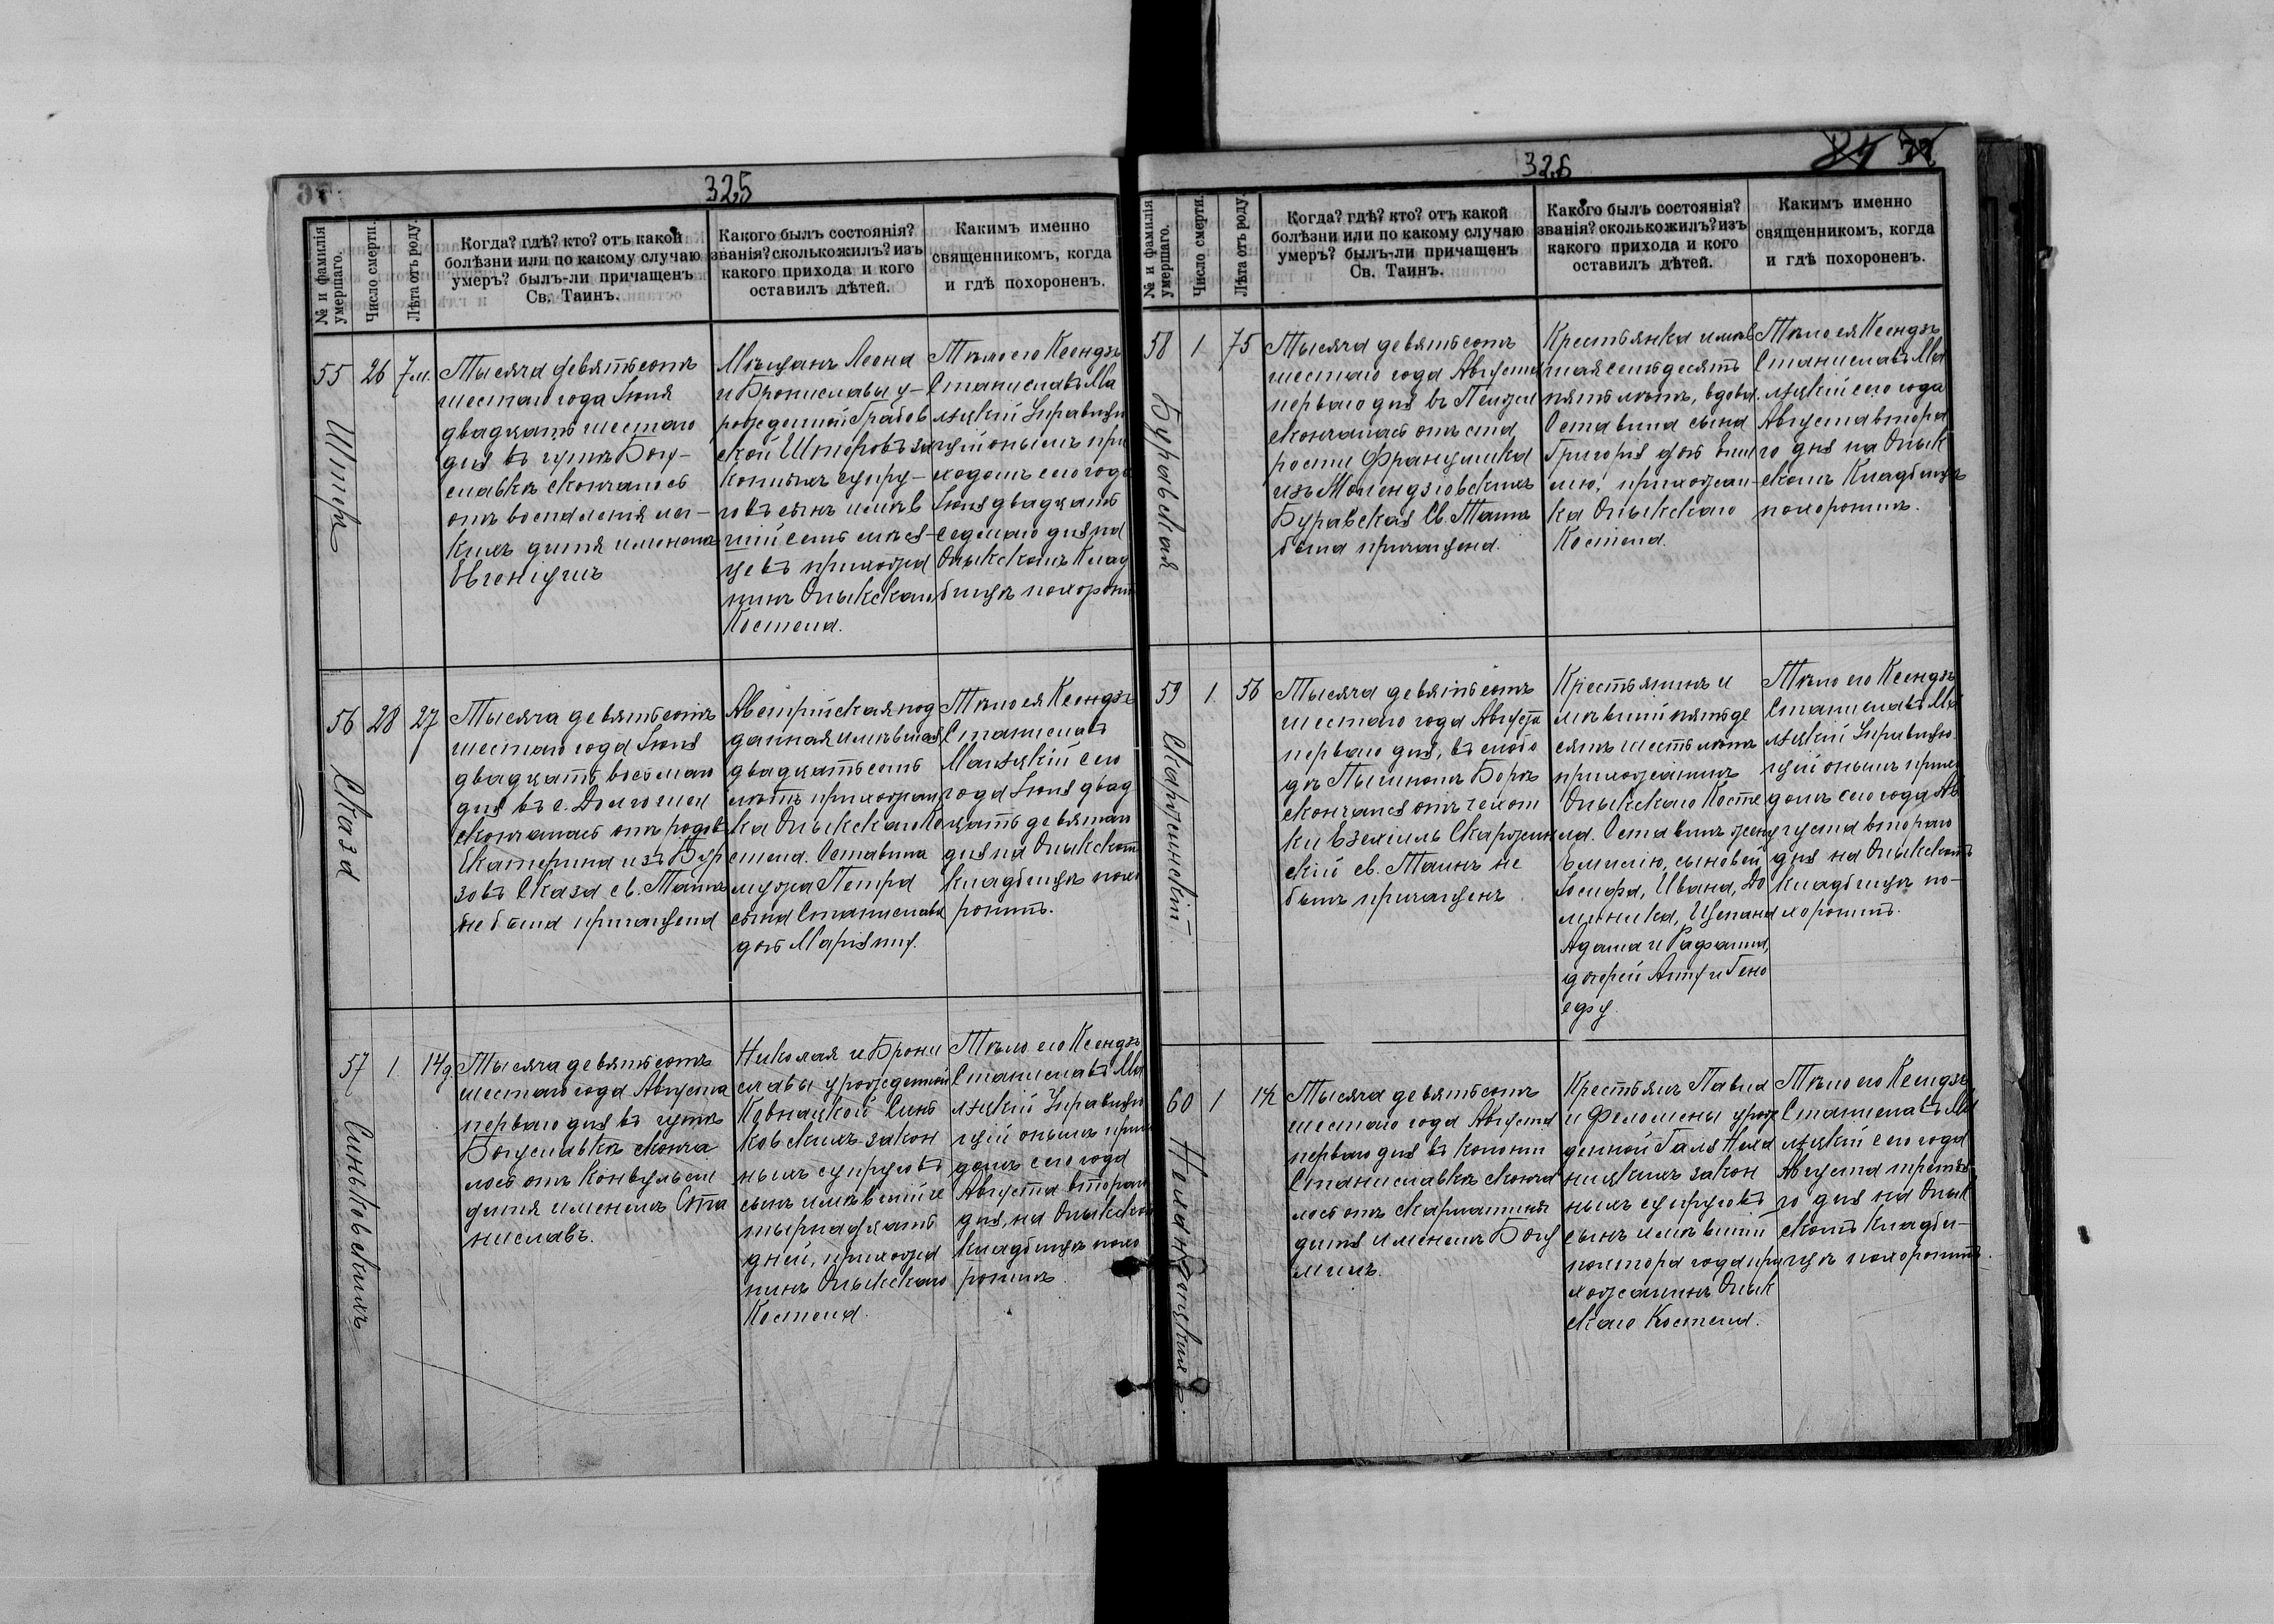 325
№ и фамилія умершаго.
Число смерти.
Лѣта отъ роду.
Когда? гдѣ? кто? отъ какой
болѣзни или по какому случаю
умеръ? былъ-ли причащенъ
Св. Таинъ.
Какого былъ состоянія?
званія? сколько жилъ? изъ
какого прихода и кого
оставилъ дѣтей.
Какимъ именно
священникомъ, когда
и гдѣ похороненъ.
55
26
7 м.
Тысяча девятьсотъ
шестаго года Іюня
двадцать шестаго
дня въ гутѣ Богу-
славкѣ скончалось
отъ воспаленія лег-
кихъ дитя именемъ
Евгеніушъ
Мѣщанъ Леона
и Брониславы у-
рожденной Грабов
ской Шторховъ за
конныхъ супру-
говъ сынъ имѣв
шій семь мѣся-
цевъ прихожа
нинъ Олыкскаго
Костела.
Тѣло его Ксендзъ
Станиславъ Ма
лѣцкій Управляю
щій онымъ при
ходомъ сего года
Іюня двадцать
седьмаго дня на
Олыкскомъ Клад
бищѣ похорони
56
Сказа
28
27
Тысяча девятьсотъ
шестаго года Іюня
двадцать восьмаго
дня въ с. Долгошеи
скончалась отъ родов
Екатерина изъ Бур
зовъ Сказа св. Таинъ
не была причащена
Австрійская под
данная имѣвшая
двадцать семь
лѣтъ прихожан
ка Олыкскаго Ко
стела. Оставила
мужа Петра
сына Станислава
дочь Маріянну.
Тѣло ея Ксендзъ
Станиславъ
Малѣцкій сего
года Іюня двад
цать девятаго
дня на Олыкскомъ
кладбищѣ похо
ронилъ.
57
Синьковскихъ
1
14 д
Тысяча девятьсотъ
шестаго года Августа
перваго дня въ гутѣ
Богуславкѣ сконча
лось отъ конвульсіи
дитя именемъ Ста
ниславъ.
Николая и Брони
славы урожденной
Ковнацкой Синь
ковскихъ закон
ныхъ супруговъ
сынъ имѣвшій че
тырнадцать
дней, прихожа
нинъ Олыкскаго
Костела.
Тѣло его Ксендзъ
Станиславъ Ма
лѣцкій Управляю
щій онымъ прихо
домъ сего года
Августа втораго
дня, на Олыкскомъ
кладбищѣ похо
ронилъ.
326
№ и фамилія умершаго.
Число смерти.
Лѣта отъ роду.
Когда? гдѣ? кто? отъ какой
болѣзни или по какому случаю
умеръ? былъ-ли причащенъ
Св. Таинъ.
Какого былъ состоянія?
званія? сколько жилъ? изъ
какого прихода и кого
оставилъ дѣтей.
Какимъ именно
священникомъ, когда
и гдѣ похороненъ.
58
Буравская
1
75
Тысяча девятьсотъ
шестаго года Августа
перваго дня въ
скончалась отъ ста
рости Францишка
изъ Молендзіовскихъ
Буравская Св. Таинъ
была причащена.
Крестьянка имѣв
шая семьдесятъ
пять лѣтъ, вдова.
Оставила сына
Григорія дочь Эми
лію, прихожан-
ка Олыкскаго
Костела.
Тѣло ея Ксендзъ
Станиславъ Ма
лѣцкій сего года
Августа втора
го дня на Олык
скомъ Кладбищѣ
похоронилъ.
59
Скаржинскій
1
56
Тысяча девятьсотъ
шестаго года Августа
перваго дня, въ слобо
дѣ Пьяномъ Борѣ
скончался отъ чахот
ки Езехіиль Скаржин
скій св. Таинъ не
былъ причащенъ
Крестьянинъ и
мѣвшій пятьде
сятъ шесть лѣтъ
прихожанинъ
Олыкскаго Косте
ла. Оставилъ жену
Эмилію, сыновей
Іосифа, Ивана, До
миника, Щепана
Адама и Рафаила,
дочерей Анну и Гено
ефу
Тѣло его Ксендзъ
Станиславъ Ма
лѣцкій Управляю
щій онымъ прихо
домъ сего года Ав
густа втораго
дня на Олыкскомъ
кладбищѣ по-
хоронилъ.
60
1
1½
Тысяча девятьсотъ
шестаго года Августа
перваго дня въ колоніи
Станиславкѣ сконча
лось отъ скарлатины
дитя именемъ Богу
милъ.
Крестьянъ Павла
и Филомены урож
денной Галь
ницкихъ закон
ныхъ супруговъ
сынъ имѣвшій
полтора года при
хожанинъ Олык
скаго Костела.
Тѣло его Ксендзъ
Станиславъ Ма
лѣцкій сего года
Августа третья
го дня на Олык
скомъ кладби-
щѣ похоронилъ.